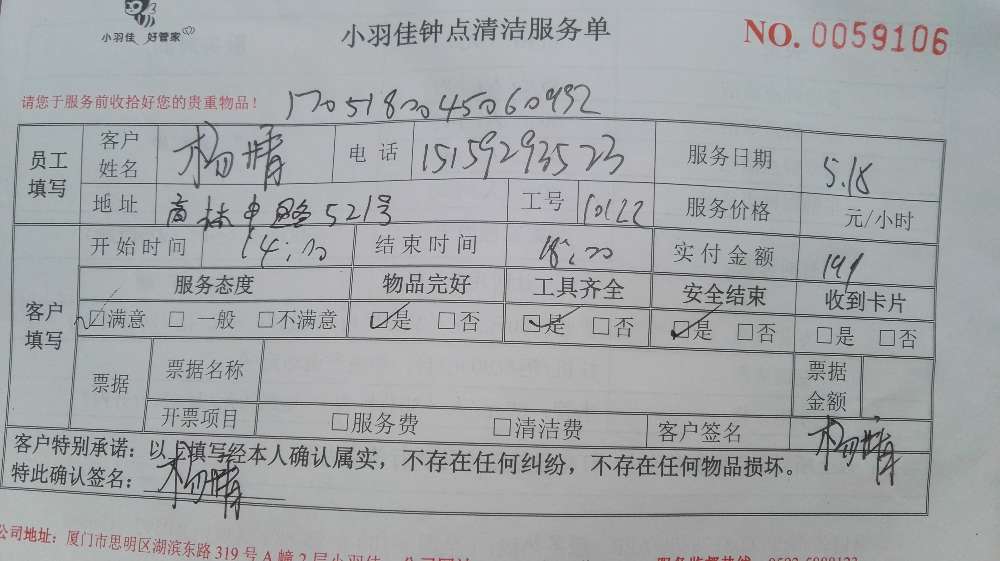 小羽佳 好管家
小羽佳钟点清洁服务单
NO. 0059106
请您于服务前收拾好您的贵重物品！
1705180045060932
员工填写 客户姓名 杨晴 电话 15159293523 服务日期 5.18
地址 高林中路521号 工号 10122 服务价格 元/小时
客户填写 开始时间 14:00 结束时间 18:00 实付金额 191
服务态度 物品完好 工具齐全 安全结束 收到卡片
☑满意 □一般 □不满意 ☑是 □否 ☑是 □否 ☑是 □否 □是 □否
票据 票据名称 票据金额
开票项目 □服务费 □清洁费 客户签名 杨晴
客户特别承诺：以上填写经本人确认属实，不存在任何纠纷，不存在任何物品损坏。
特此确认签名： 杨晴
公司地址：厦门市思明区湖滨东路319号A幢2层小羽佳